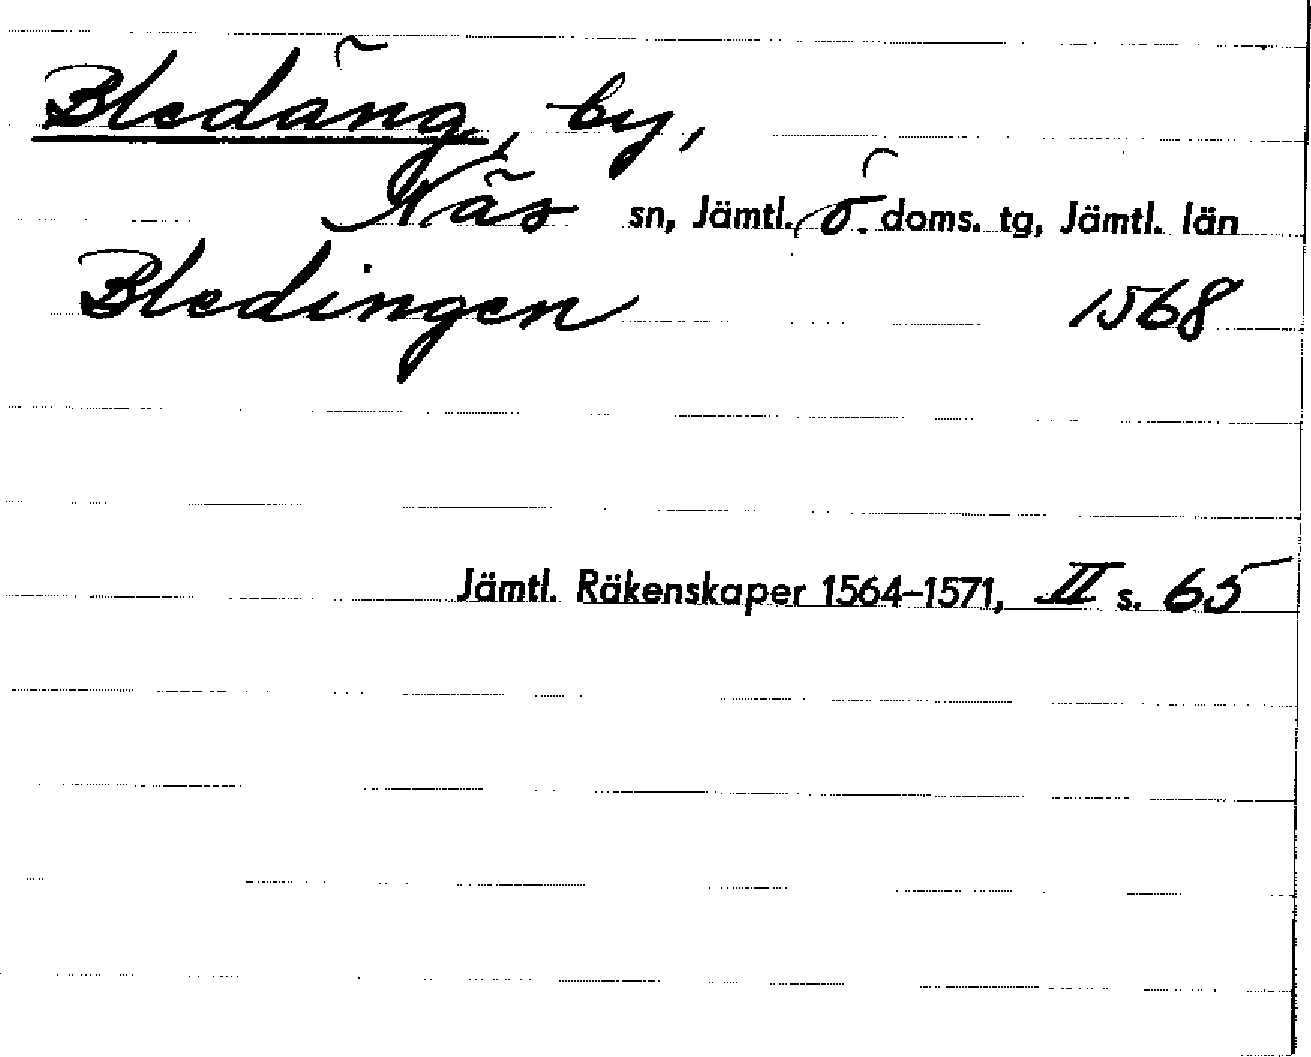 Bledäng, by,
Näs sn, Jämtl. ö. doms. tg, Jämtl. län
Bledingen 1568
Jämtl. Räkenskaper 1564-1571, II s. 65